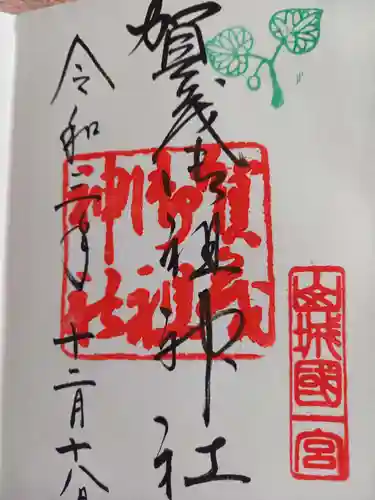 賀茂御祖神社
賀茂御祖神社
山城國一宮
令和三年十二月十八日